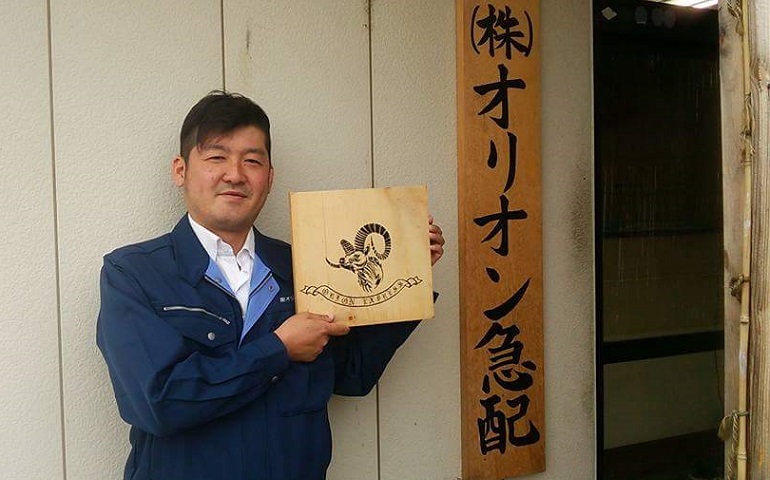 ㈱オリオン急配
ORION EXPRESS